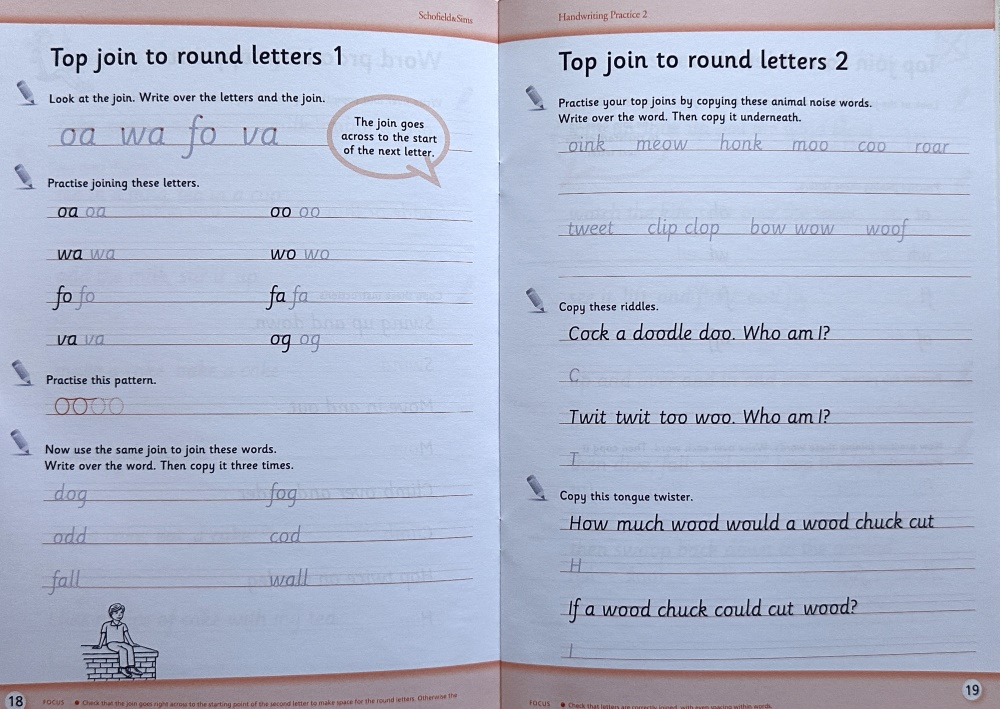 Schofield&Sims
Top join to round letters 1
Look at the join. Write over the letters and the join.
oa wa fo va
The join goes
across to the start
of the next letter.
Practise joining these letters.
oa oa oo oo
wa wa wo wo
fo fo fa fa
va va og og
Practise this pattern.
Now use the same join to join these words.
Write over the word. Then copy it three times.
dog fog
odd cod
fall wall
18
FOCUS ● Check that the join goes right across to the starting point of the second letter to make space for the round letters. Otherwise the
Handwriting Practice 2
Top join to round letters 2
Practise your top joins by copying these animal noise words.
Write over the word. Then copy it underneath.
oink meow honk moo coo roar
tweet clip clop bow wow woof
Copy these riddles.
Cock a doodle doo. Who am I?
C
Twit twit too woo. Who am I?
T
Copy this tongue twister.
How much wood would a wood chuck cut
H
If a wood chuck could cut wood?
I
19
FOCUS ● Check that letters are correctly joined, with even spacing within words.